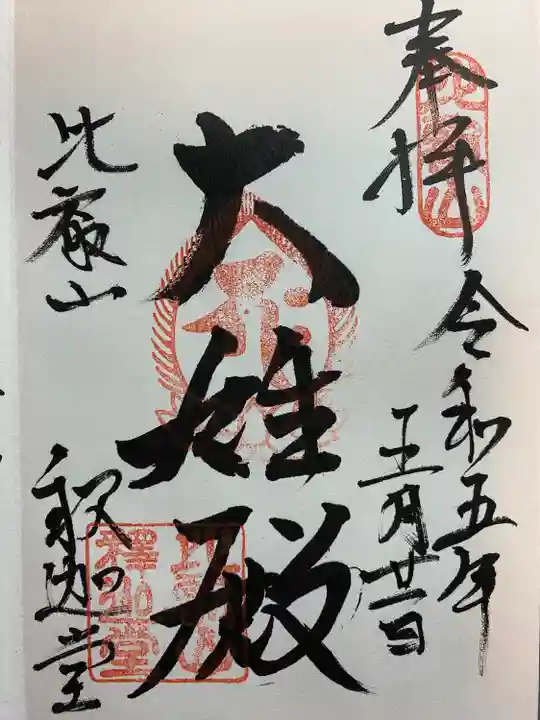 奉拝
令和五年
五月廿一日
大雄殿
比叡山
釈迦堂
釋迦堂